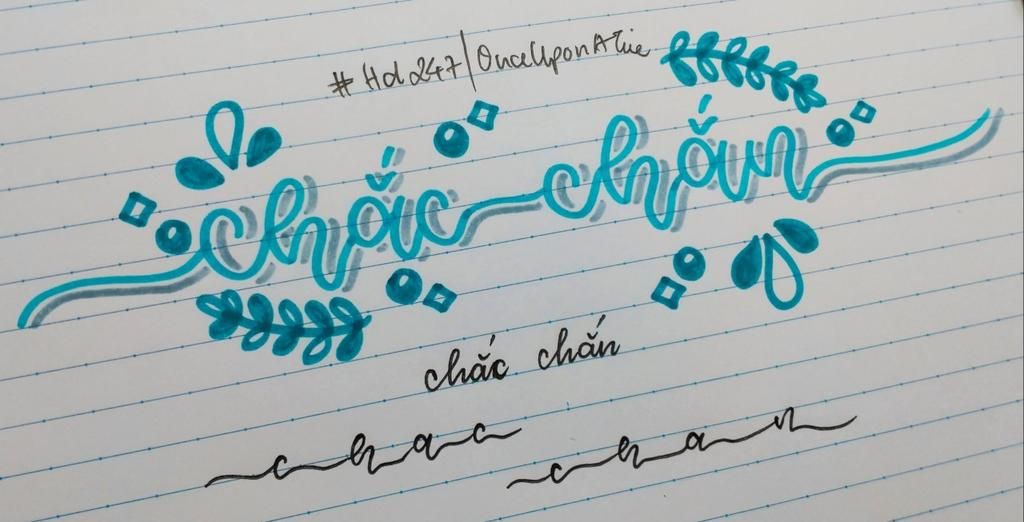 #Hd247/OnceUponATie
chắc chắn
chắc chắn
chac chan